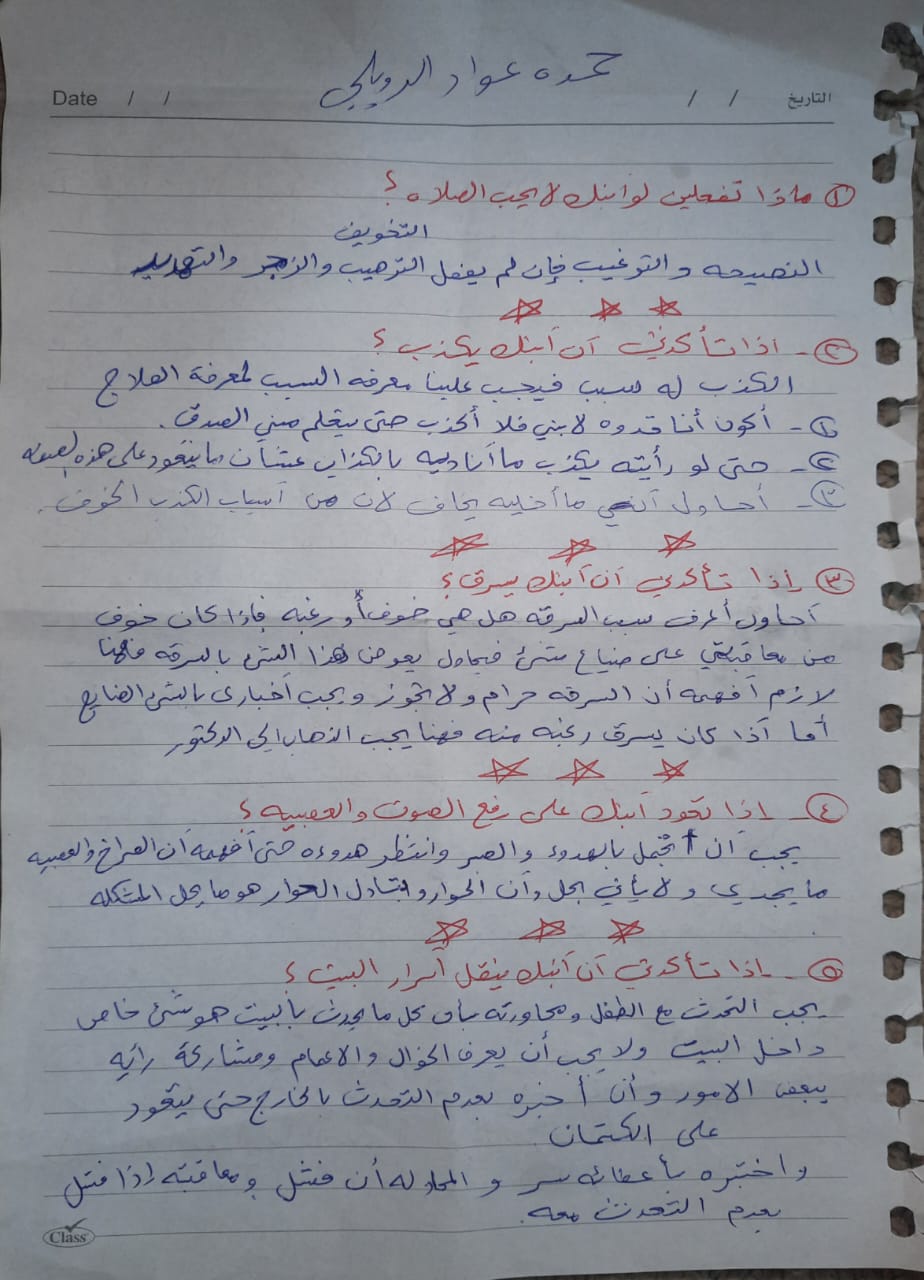 حمده عواد الرويلي
Date / /
/ / التاريخ
① ماذا تفعلين لو ابنك لا يحب الصلاه ؟
التخويف
النصيحه والترغيب فإن لم يفعل الترهيب والزجر والتهديد
②- اذا تأكدتي أن أبنك يكذب ؟
الكذب له سبب فيجب علينا معرفه السبب لمعرفة العلاج
①- أكون أنا قدوه لابني فلا أكذب حتى يتعلم مني الصدق .
②- حتى لو رأيته يكذب ما أناديه بالكذاب عشان ما يتعود على هذه الصفه
③- أحاول أنني ما أخليه يخاف لان من أسباب الكذب الخوف .
③- إذا تأكدتي أن أبنك يسرق ؟
أحاول أعرف سبب السرقه هل هي خوف أو رغبه فإذا كان خوف
من معاقبتي على ضياع شئ فيحاول يعوض هذا الشئ بالسرقه فهنا
لازم أفهمه أن السرقه حرام ولا تجوز ويجب أخباري بالشئ الضايع
أما أذا كان يسرق رغبه منه فهنا يجب الذهاب الى الدكتور
④- اذا تعود أبنك على رفع الصوت والعصبيه ؟
يجب أن أتحمل بالهدوء والصبر وانتظر هدوءه حتى أفهمه أن الصراخ والعصبيه
ما يجدي ولا يأتي بحل وأن الحوار وتبادل الحوار هو ما يحل المشكله
⑤- اذا تأكدتي أن أبنك ينقل أسرار البيت ؟
يجب التحدث مع الطفل ومحاورته بأن كل ما يحدث بالبيت هو شئ خاص
داخل البيت ولا يجب أن يعرف الخوال والاعمام ومشاركة رائيه
ببعض الامور وأن أخبره بعدم التحدث بالخارج حتى يتعود
على الكتمان
واختبره بأعطائه سر و المحاوله أن فشل و معاقبته إذا فشل
بعدم التحدث معه .
Class